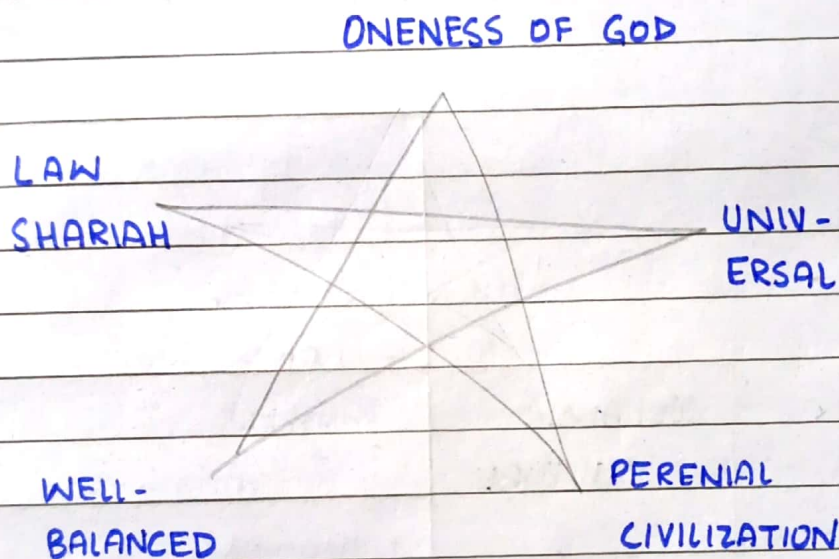 ONENESS OF GOD
LAW
SHARIAH
UNIV-
ERSAL
WELL-
BALANCED
PERENIAL
CIVILIZATION